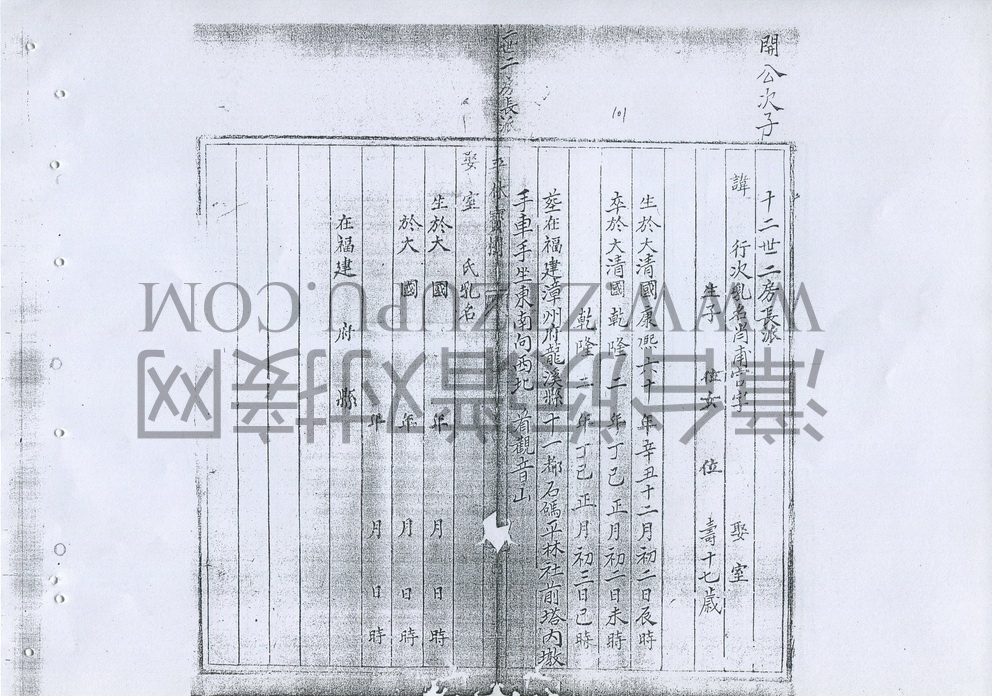 開公次子
十二世二房長派
諱 行次乳名尚甫官字 娶室
生子 位女 位 壽十七歲
生於大清國康熙六十年辛丑十二月初二日辰時
卒於大清國乾隆二年丁巳正月初二日未時
乾隆二年丁巳正月初三日巳時
塟在福建漳州府龍溪縣十一都石碼平林社前塔內墩
手車手坐東南向西北 看觀音山
二房長派
娶室 氏乳名
生於大 國 年 月 日 時
於大 國 年 月 日 時
年 月 日 時
在福建 府 縣
101
WWW.ZZZUPU.COM
漳台族谱对接网